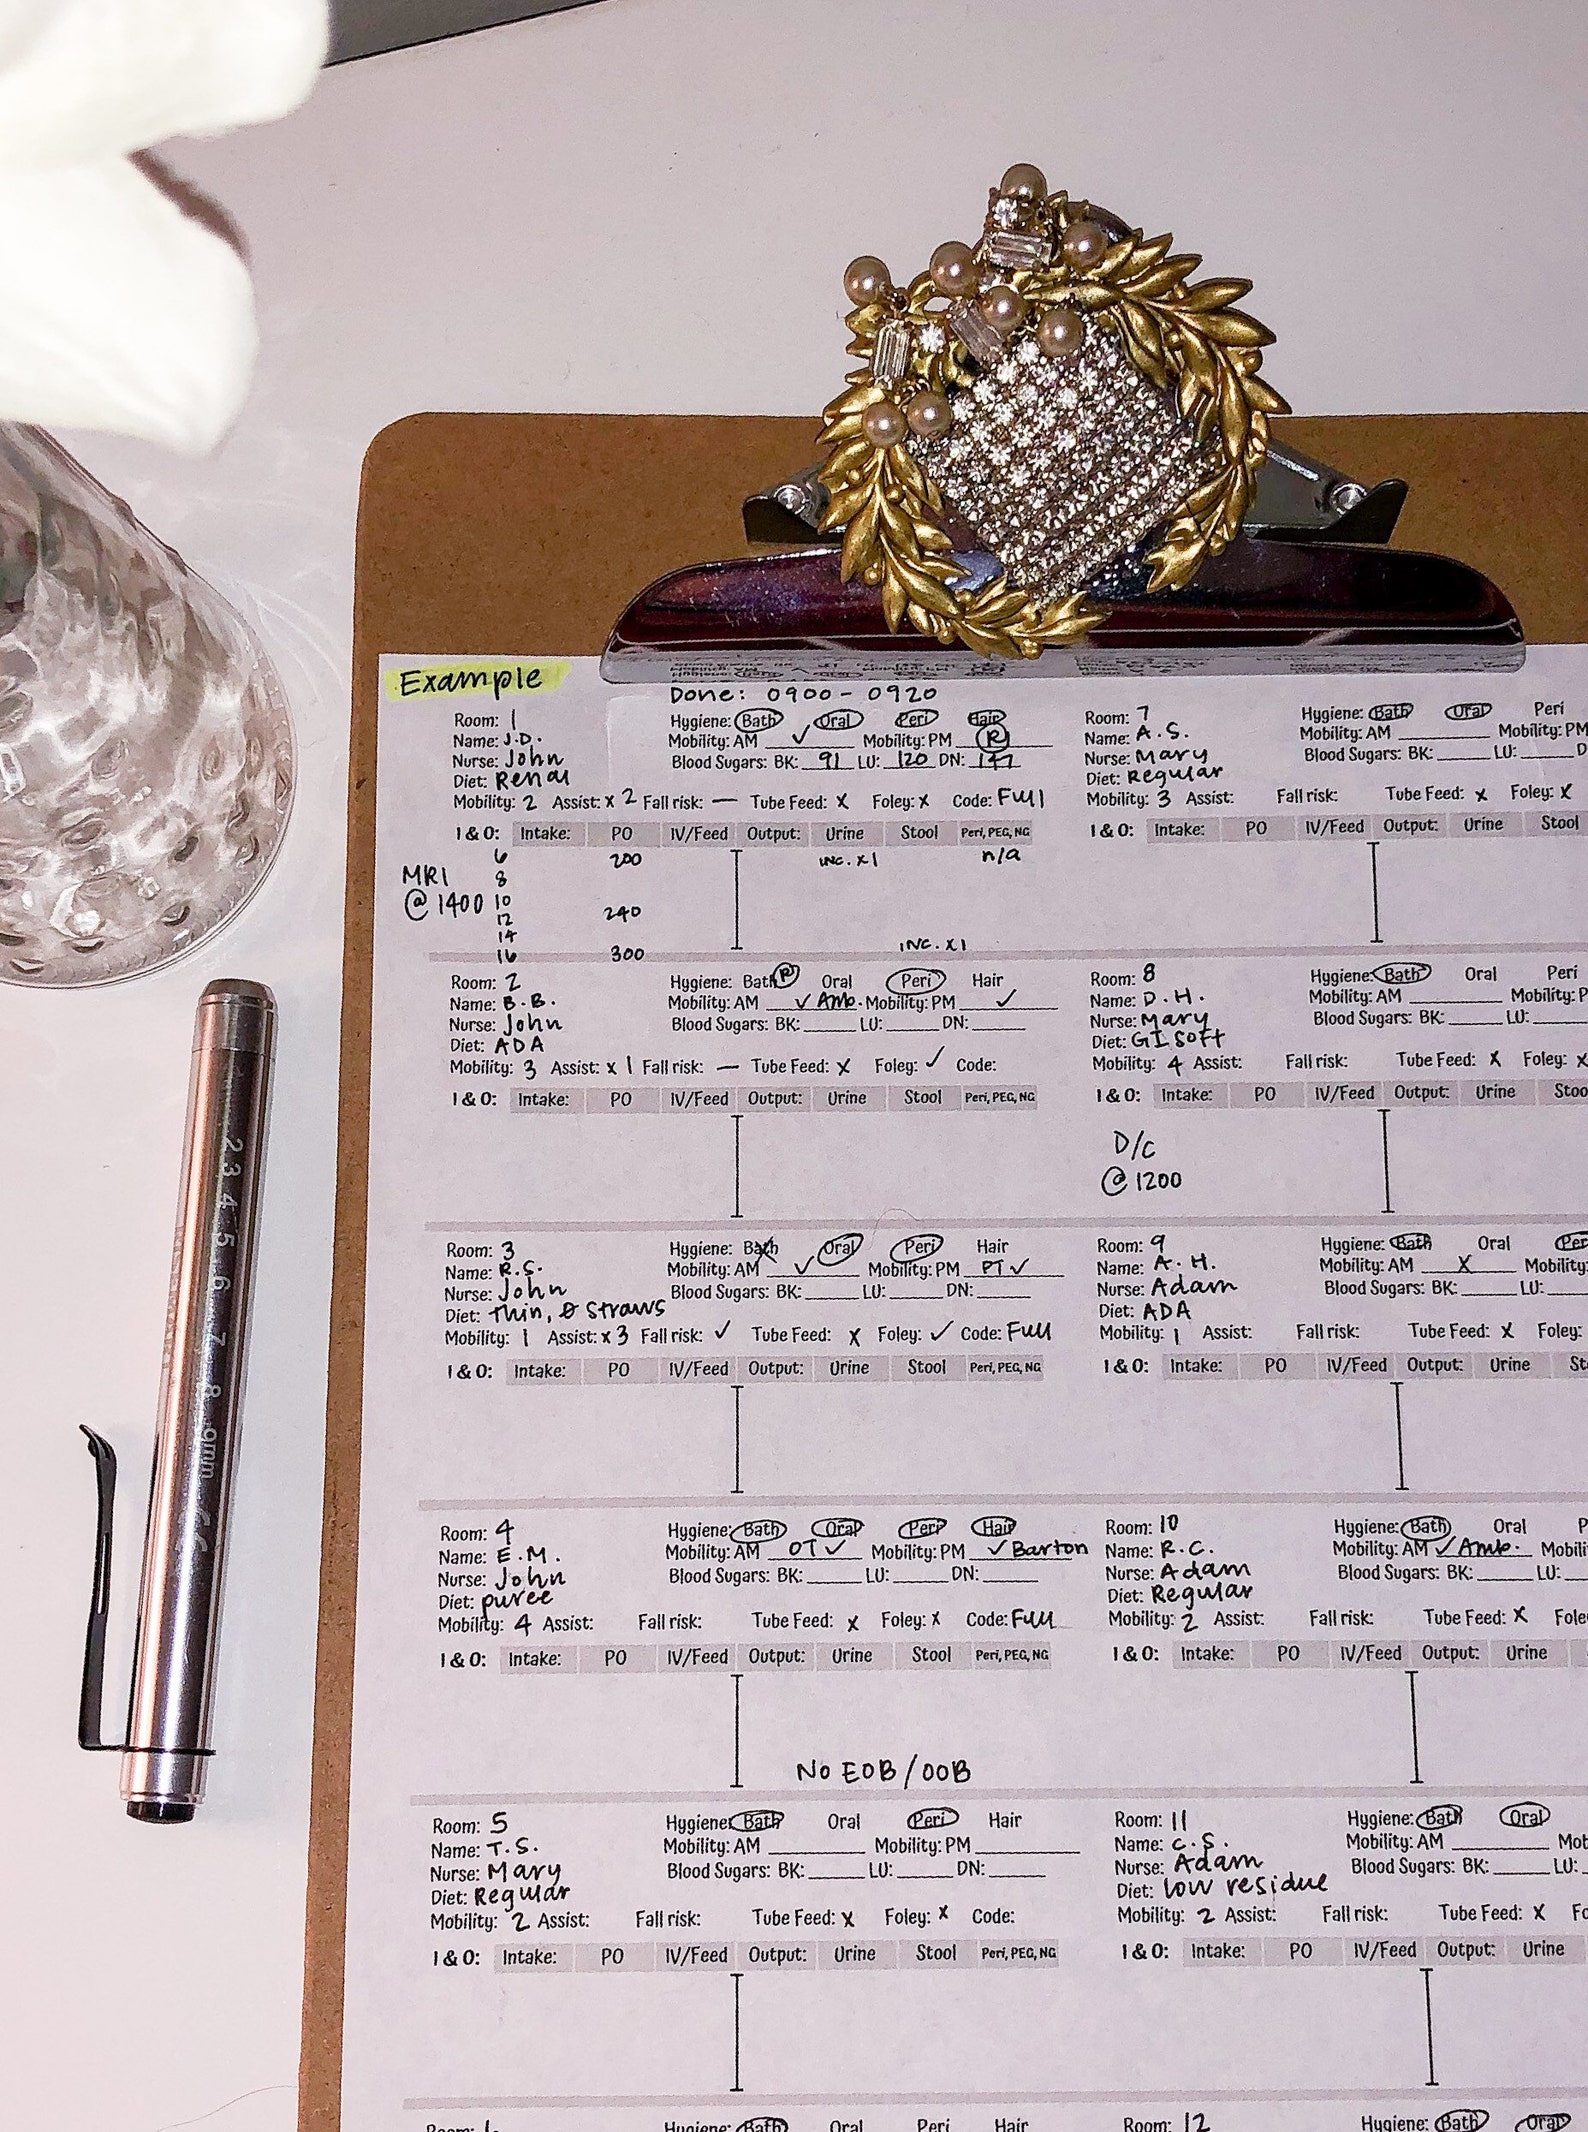 Example
Done: 0900 - 0920
Room: 1
Name: J.D.
Nurse: John
Diet: Renal
Hygiene: Bath Oral Peri Hair
Mobility: AM ✓ Mobility: PM R
Blood Sugars: BK: 91 LU: 120 DN:
Mobility: 2 Assist: x 2 Fall risk: — Tube Feed: x Foley: x Code: Full
I & O: Intake: PO IV/Feed Output: Urine Stool Peri, PEG, NG
6 200 INC. x1 n/a
MRI
@ 1400
8
10
12 240
14
16 300 INC. x1
Room: 2
Name: B.B.
Nurse: John
Diet: ADA
Hygiene: Bath R Oral Peri Hair
Mobility: AM ✓ Amb. Mobility: PM ✓
Blood Sugars: BK: LU: DN:
Mobility: 3 Assist: x 1 Fall risk: — Tube Feed: x Foley: ✓ Code:
I & O: Intake: PO IV/Feed Output: Urine Stool Peri, PEG, NG
Room: 3
Name: R.S.
Nurse: John
Diet: Thin, Ø straws
Hygiene: Bath Oral Peri Hair
Mobility: AM ✓ Mobility: PM PT ✓
Blood Sugars: BK: LU: DN:
Mobility: 1 Assist: x 3 Fall risk: ✓ Tube Feed: x Foley: ✓ Code: Full
I & O: Intake: PO IV/Feed Output: Urine Stool Peri, PEG, NG
Room: 4
Name: E.M.
Nurse: John
Diet: puree
Hygiene: Bath Oral Peri Hair
Mobility: AM OT ✓ Mobility: PM ✓ Barton
Blood Sugars: BK: LU: DN:
Mobility: 4 Assist: Fall risk: Tube Feed: x Foley: x Code: Full
I & O: Intake: PO IV/Feed Output: Urine Stool Peri, PEG, NG
NO EOB / OOB
Room: 5
Name: T.S.
Nurse: Mary
Diet: Regular
Hygiene: Bath Oral Peri Hair
Mobility: AM Mobility: PM
Blood Sugars: BK: LU: DN:
Mobility: 2 Assist: Fall risk: Tube Feed: x Foley: x Code:
I & O: Intake: PO IV/Feed Output: Urine Stool Peri, PEG, NG
Room:
Hygiene: Bath Oral Peri Hair
Room: 7
Name: A.S.
Nurse: Mary
Diet: Regular
Hygiene: Bath Oral Peri
Mobility: AM Mobility: PM
Blood Sugars: BK: LU: D
Mobility: 3 Assist: Fall risk: Tube Feed: x Foley: x
I & O: Intake: PO IV/Feed Output: Urine Stool
Room: 8
Name: D.H.
Nurse: Mary
Diet: GI soft
Hygiene: Bath Oral Peri
Mobility: AM Mobility: P
Blood Sugars: BK: LU:
Mobility: 4 Assist: Fall risk: Tube Feed: x Foley: x
I & O: Intake: PO IV/Feed Output: Urine Stoo
D/C
@ 1200
Room: 9
Name: A.H.
Nurse: Adam
Diet: ADA
Hygiene: Bath Oral Per
Mobility: AM X Mobility:
Blood Sugars: BK: LU:
Mobility: 1 Assist: Fall risk: Tube Feed: x Foley:
I & O: Intake: PO IV/Feed Output: Urine St
Room: 10
Name: R.C.
Nurse: Adam
Diet: Regular
Hygiene: Bath Oral P
Mobility: AM ✓ Amb. Mobili
Blood Sugars: BK: LU:
Mobility: 2 Assist: Fall risk: Tube Feed: x Fole
I & O: Intake: PO IV/Feed Output: Urine
Room: 11
Name: C.S.
Nurse: Adam
Diet: low residue
Hygiene: Bath Oral
Mobility: AM Mob
Blood Sugars: BK: LU:
Mobility: 2 Assist: Fall risk: Tube Feed: x Fo
I & O: Intake: PO IV/Feed Output: Urine
Room: 12
Hygiene: Bath Oral
2 3 4 5 6 7 8 9mm